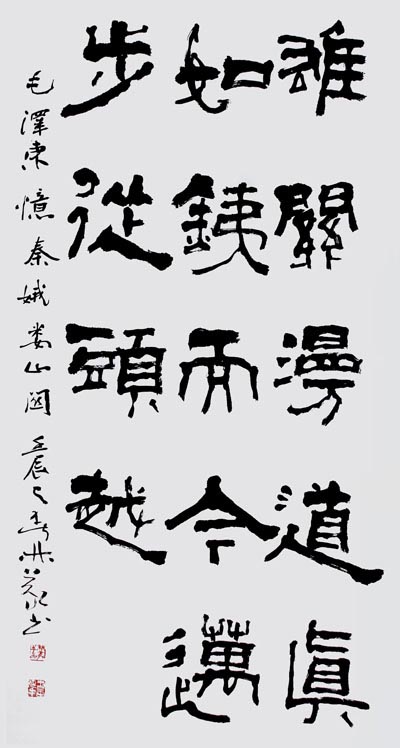 雄關漫道眞
如銕而今邁
步從頭越
毛澤東憶秦娥娄山関 壬辰之春书